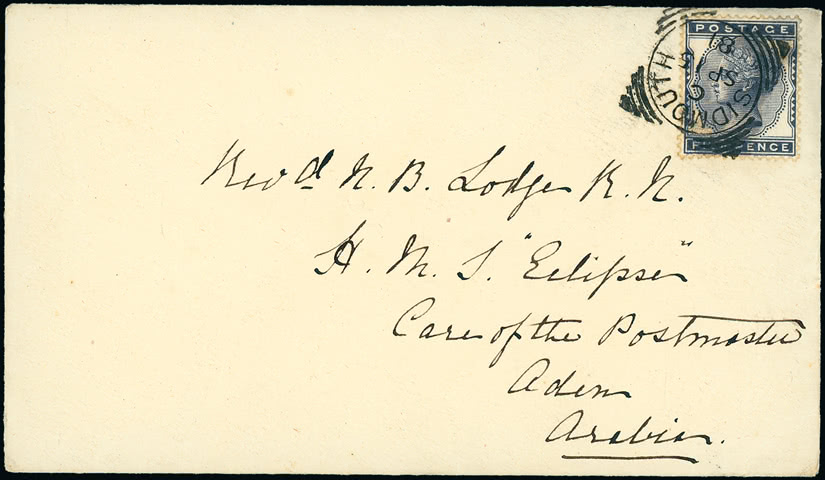 POSTAGE
SIDMOUTH
SP 15
81
PENCE
Revd N. B. Lodge R. N.
H. M. S. "Eclipse"
Care of the Postmaster
Aden
Arabia.